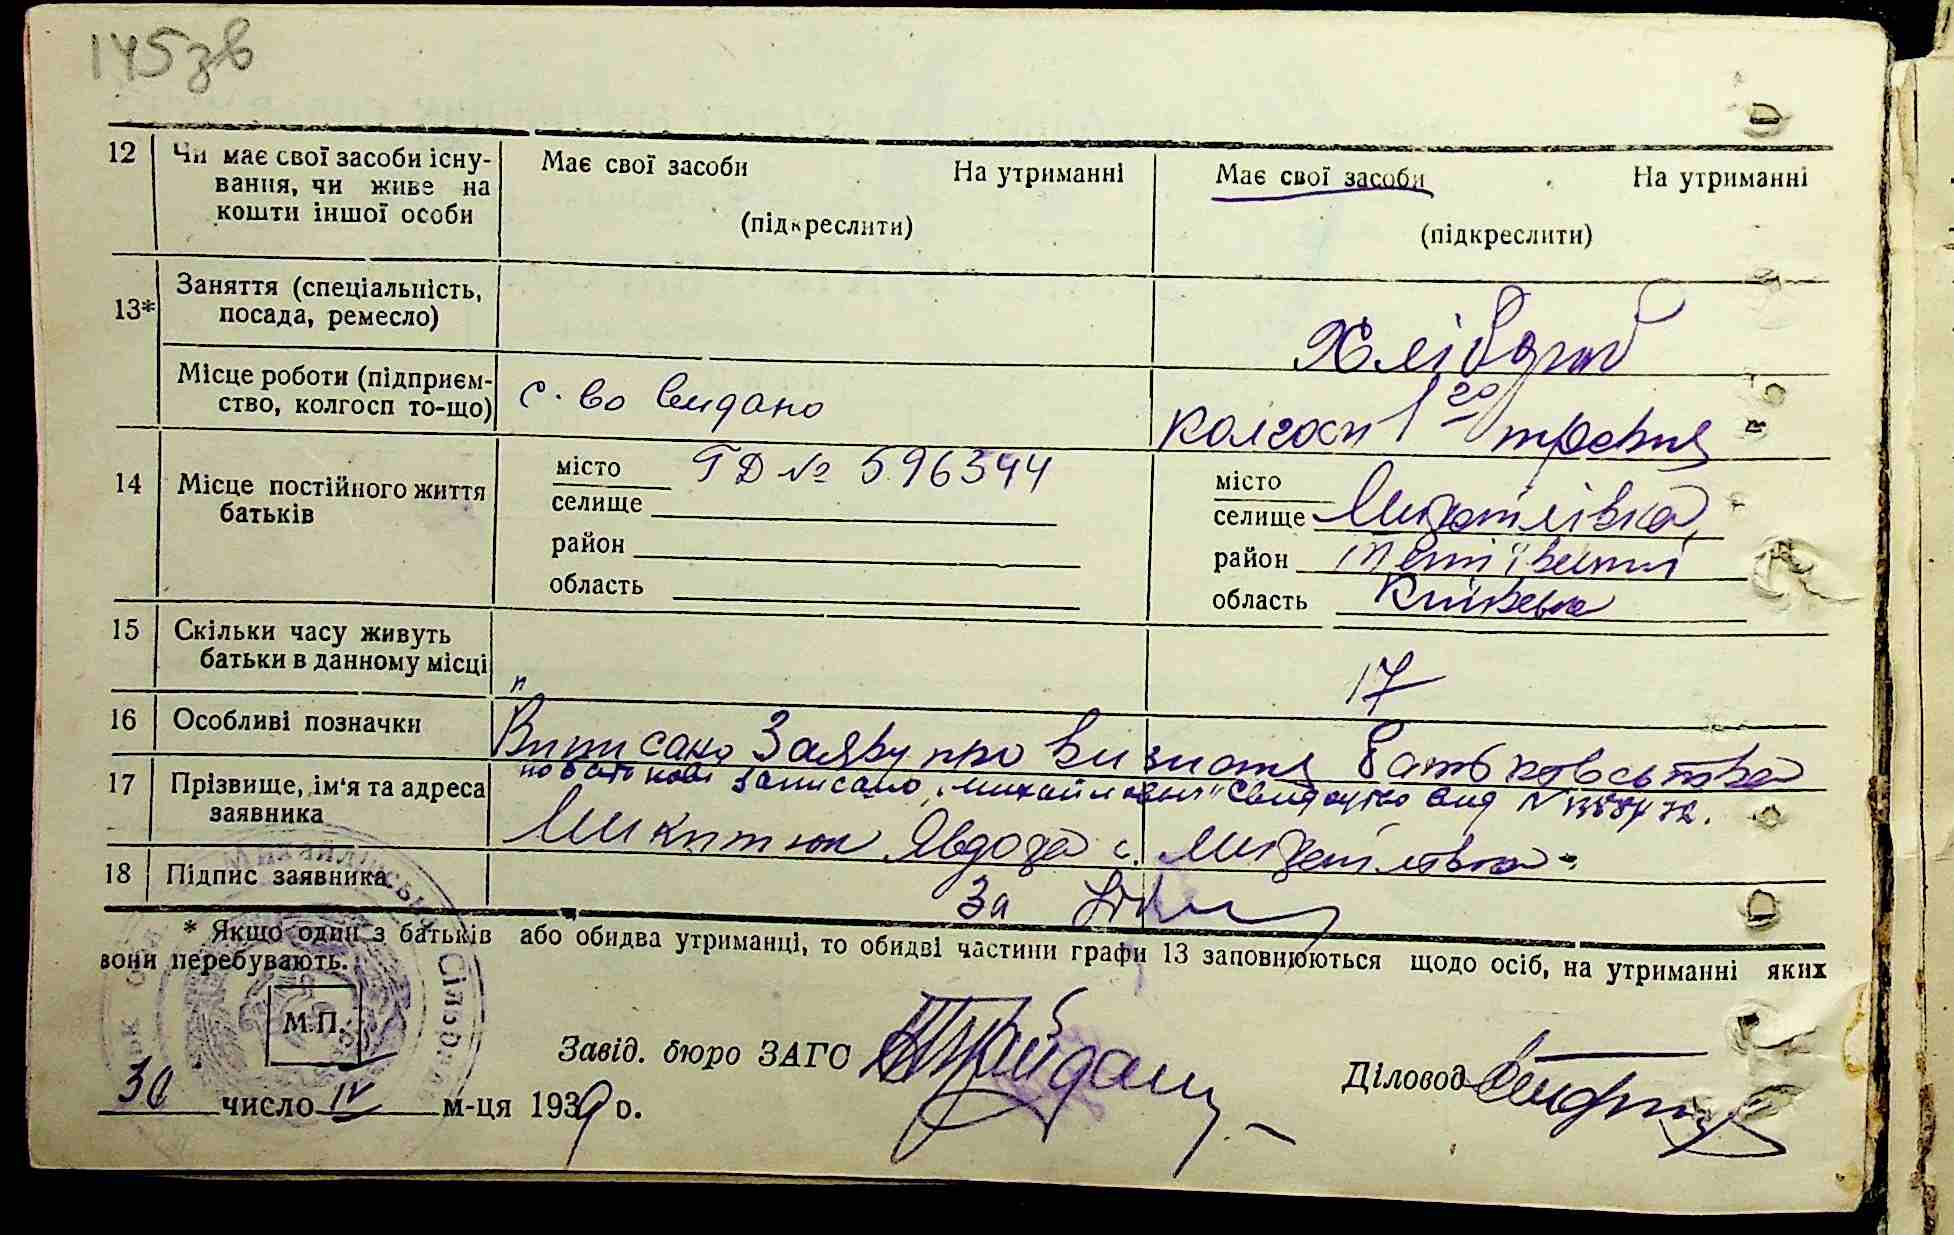 145зв
12 Чи має свої засоби існу-
вання, чи живе на
кошти іншої особи
Має свої засоби На утриманні
(підкреслити)
Має свої засоби На утриманні
(підкреслити)
13* Заняття (спеціальність,
посада, ремесло)
Хлібороб
Місце роботи (підприєм-
ство, колгосп то-що)
с-во видано
колгосп 1го травня
14 Місце постійного життя
батьків
місто ГД № 596344
селище
район
область
місто
селище Михайлівка,
район Тетіївський
область Київська
15 Скільки часу живуть
батьки в данному місці
17
16 Особливі позначки
Виписано Заяву про визнання батьковства
по батькові записано „Михайлович" Свидоцтво вид
17 Прізвище, ім'я та адреса
заявника
Микитюк Явдоха с. Михайлівка
18 Підпис заявника
За
* Якщо один з батьків або обидва утриманці, то обидві частини графи 13 заповнюються щодо осіб, на утриманні яких
вони перебувають.
М.П.
Завід. бюро ЗАГС
Діловод
30 число IV м-ця 1939 р.